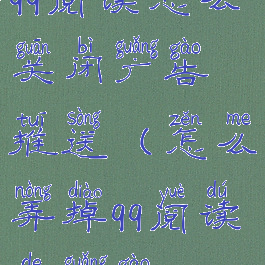 99阅读怎么
guān bì guǎng gào
关闭广告
tuī sòng zěn me
推送（怎么
nòng diào yuè dú
弄掉99阅读
de guǎng gào